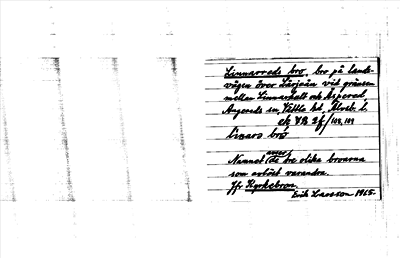 Linnareds bro, bro på lands-
vägen över Lärjeån vid gränsen
mellan Linnarhult och Aspered,
Angereds sn, Vättle hd, Älvsb. l.
ek VB 2f/108, 109
linars bro
Namnet avser de tre olika broarna
som avlöst varandra.
Jfr Kyrkebron.
Erik Larsson 1965.